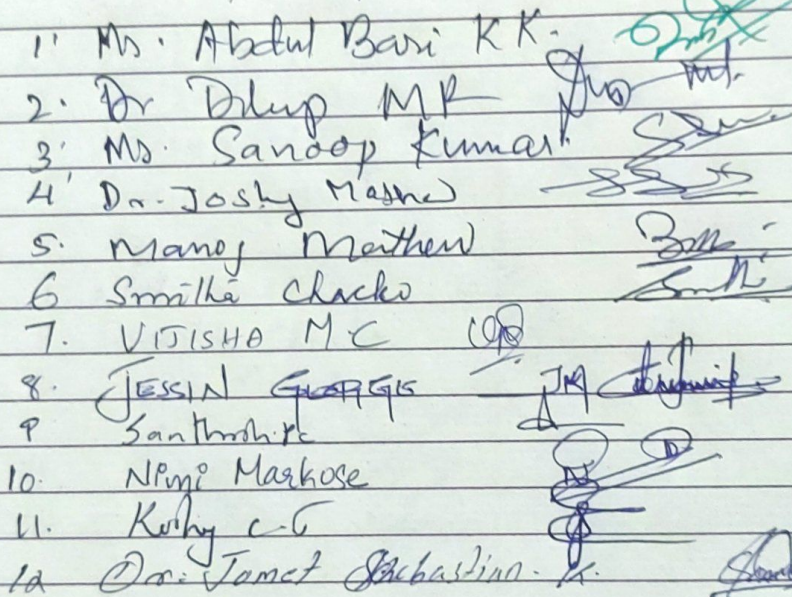 1. Mr. Abdul Bari K K.
2. Dr Dilup MR
3. Mr. Sanoop Kumar
4. Dr. Joshy Mathew
5. Manoj Mathew
6 Smitha Chacko
7. VIJISHA M C
8. JESSIN GEORGE
9 Santhosh
10. Nimi Markose
11. Koshy C
12 Dr. Sebastian.